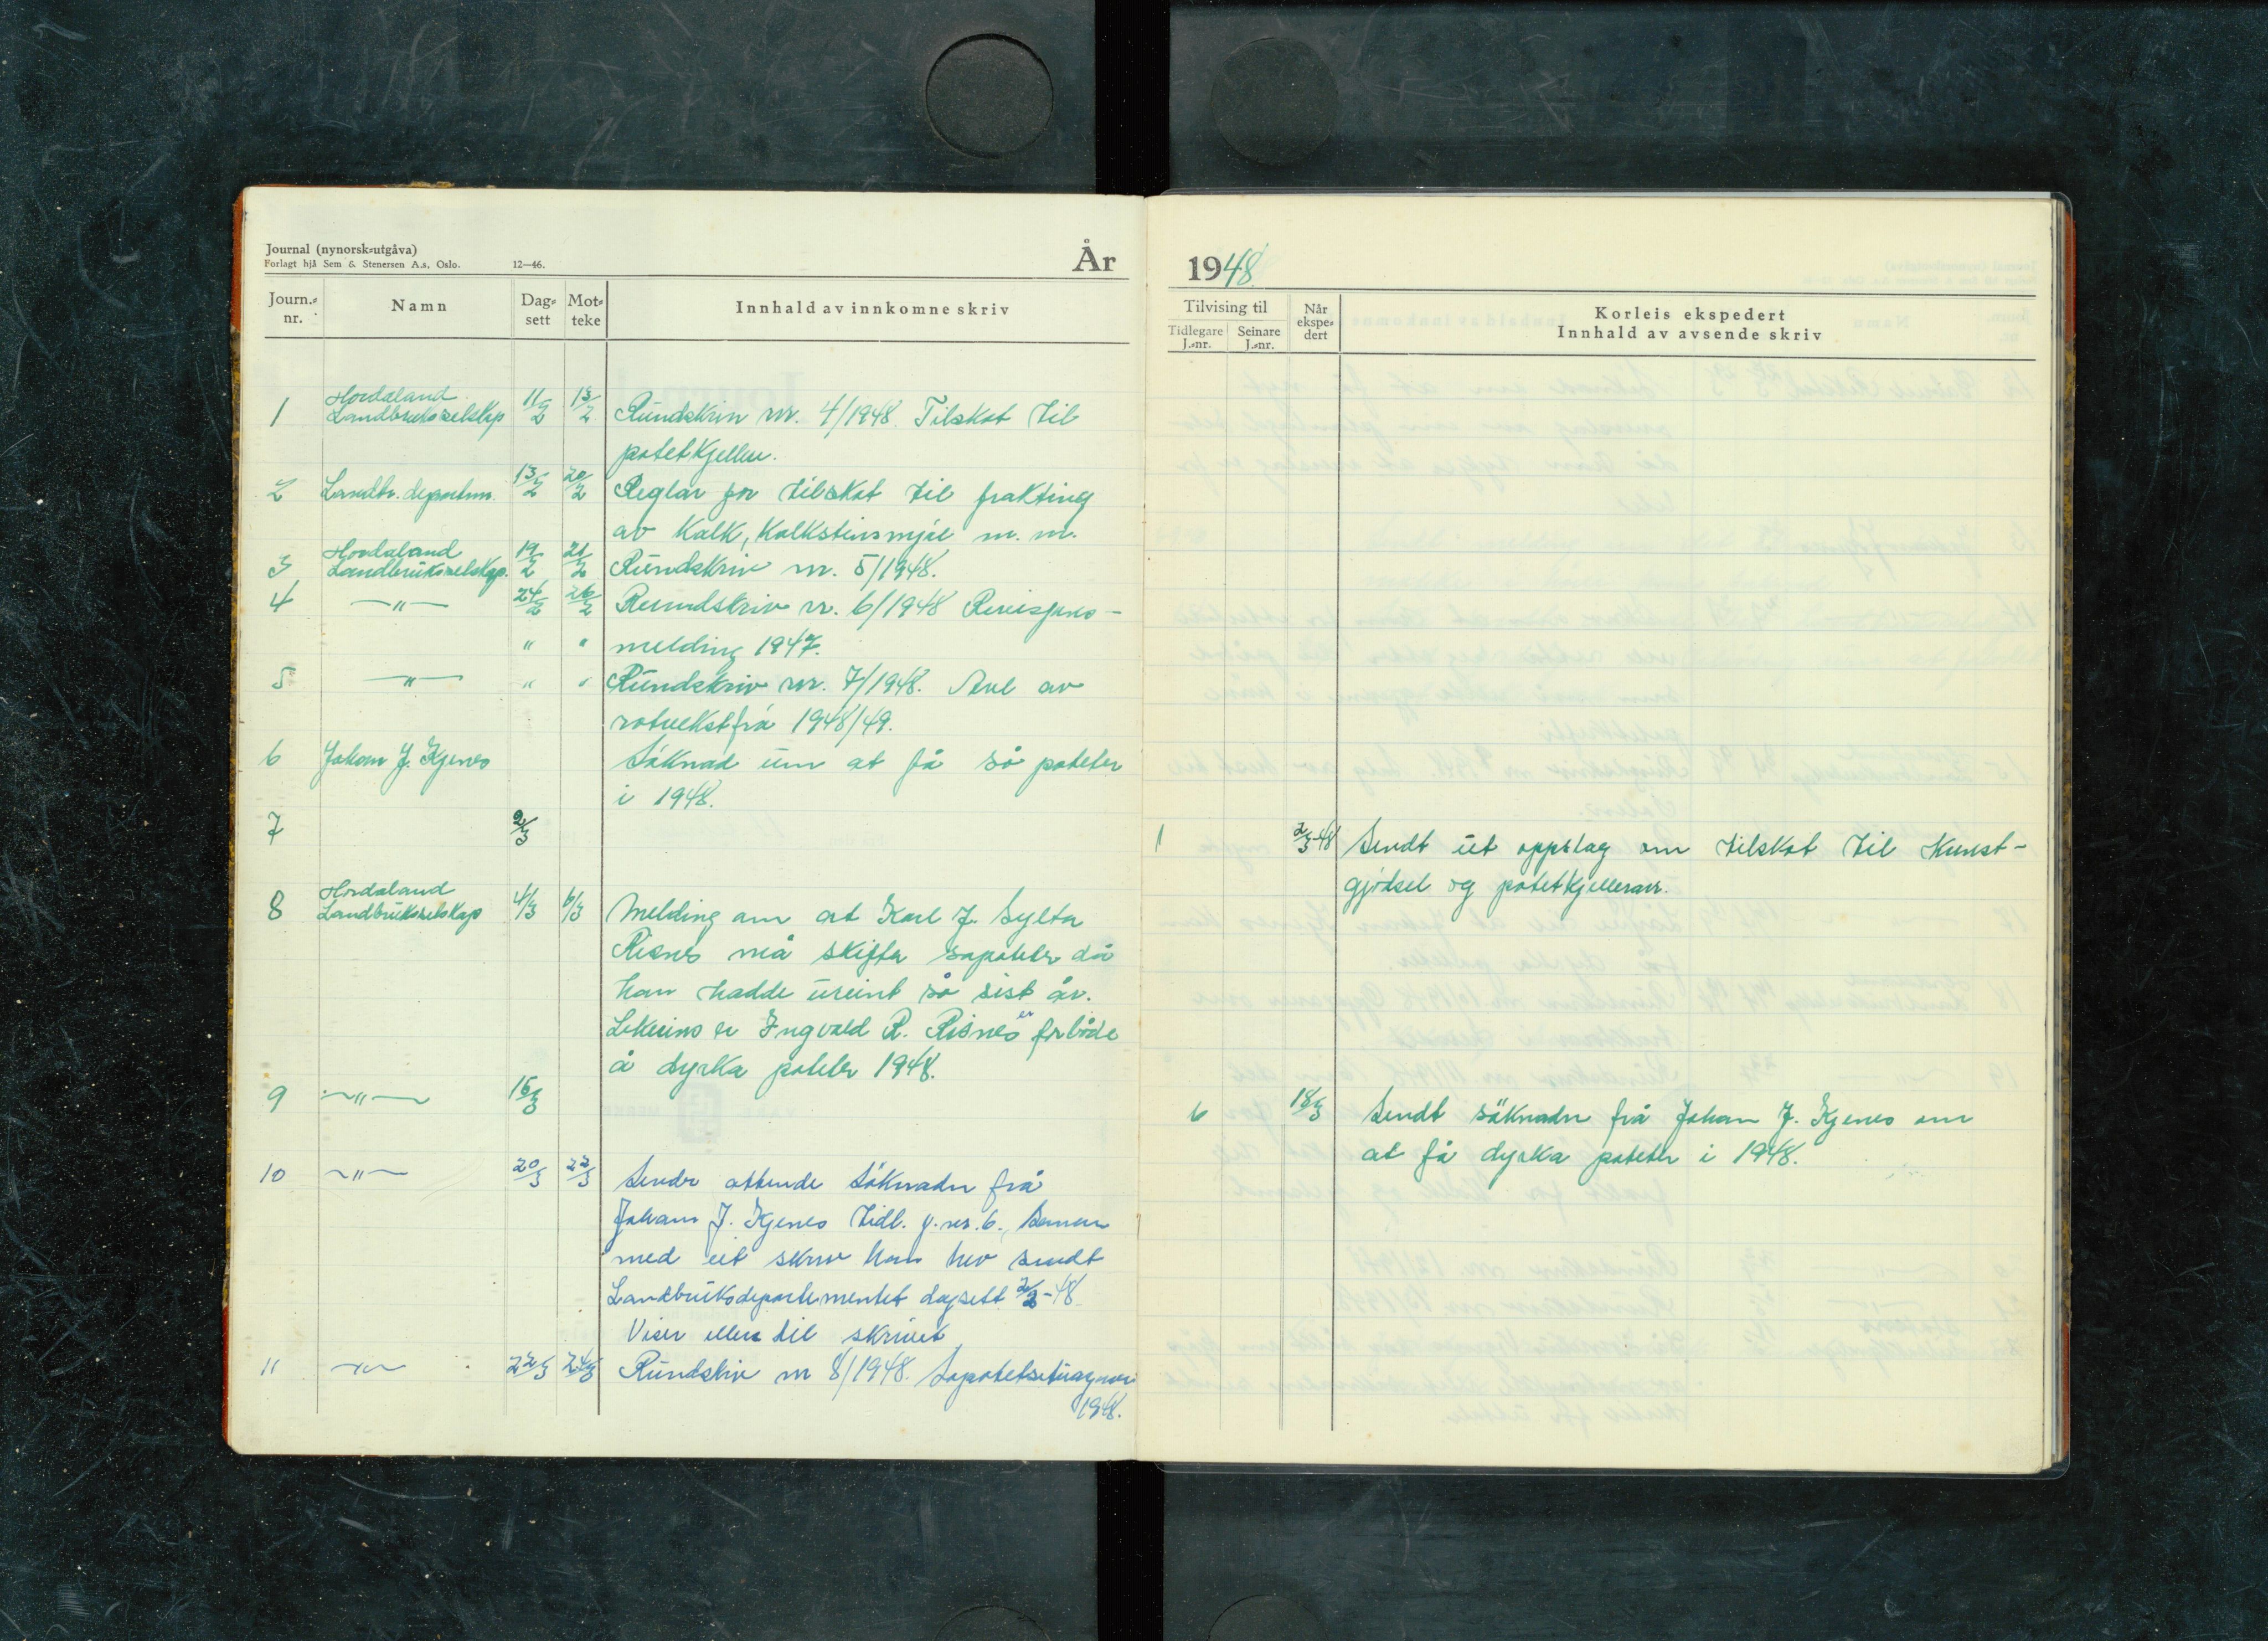 Journal (nynorsk-utgåva)
Forlagt hjå Sem & Stenersen A.s, Oslo. 12—46.
År
Journ.-nr. Namn Dag-sett Mot-teke Innhald av innkomne skriv
1 Hordaland Landbruksselskap 11/2 13/2 Rundskriv nr. 4/1948. Tilskot til
potetkjellar.
2 Landbr. departem. 13/2 20/2 Reglar for tilskot til frakting
av kalk, kalksteinsmjøl m. m.
3 Hordaland Landbruksselskap. 19/2 21/2 Rundskriv nr. 5/1948.
4 —"— 24/2 26/2 Rundskriv nr. 6/1948 Revisjons-
" " melding 1947.
5 —"— " " Rundskriv nr. 7/1948. Avl av
rotvekstfrø 1948/49.
6 Johan J. Kjenes Söknad um at få så poteter
i 1948.
7 2/3
8 Hordaland Landbruksselskap 4/3 6/3 Melding om at Karl J. Sylta
Risnes må skifta sapoteter då
han hadde ureint så sist år.
Likeeins er Ingvald R. Risnes er forbode
å dyrka poteter 1948.
9 —"— 15/3
10 —"— 20/3 22/3 Sender attende söknadn frå
Johan J. Kjenes tidl. j. nr. 6., saman
med eit skriv han hev sendt
Landbruksdepartementet dagsett 2/2-48
Viser ellers til skrivet
11 —"— 22/3 24/3 Rundskriv nr 8/1948. Sapotetsituasjonen
1948.
1948
Tilvising til
Tidlegare J.-nr. Seinare J.-nr. Når ekspe-dert Korleis ekspedert
Innhald av avsende skriv
1 2/3-48 Sendt ut oppslag om tilskot til Kunst-
gjödsel og potetkjellerar.
6 18/3 Sendt söknadn frå Johan J. Kjenes om
at få dyrka poteter i 1948.